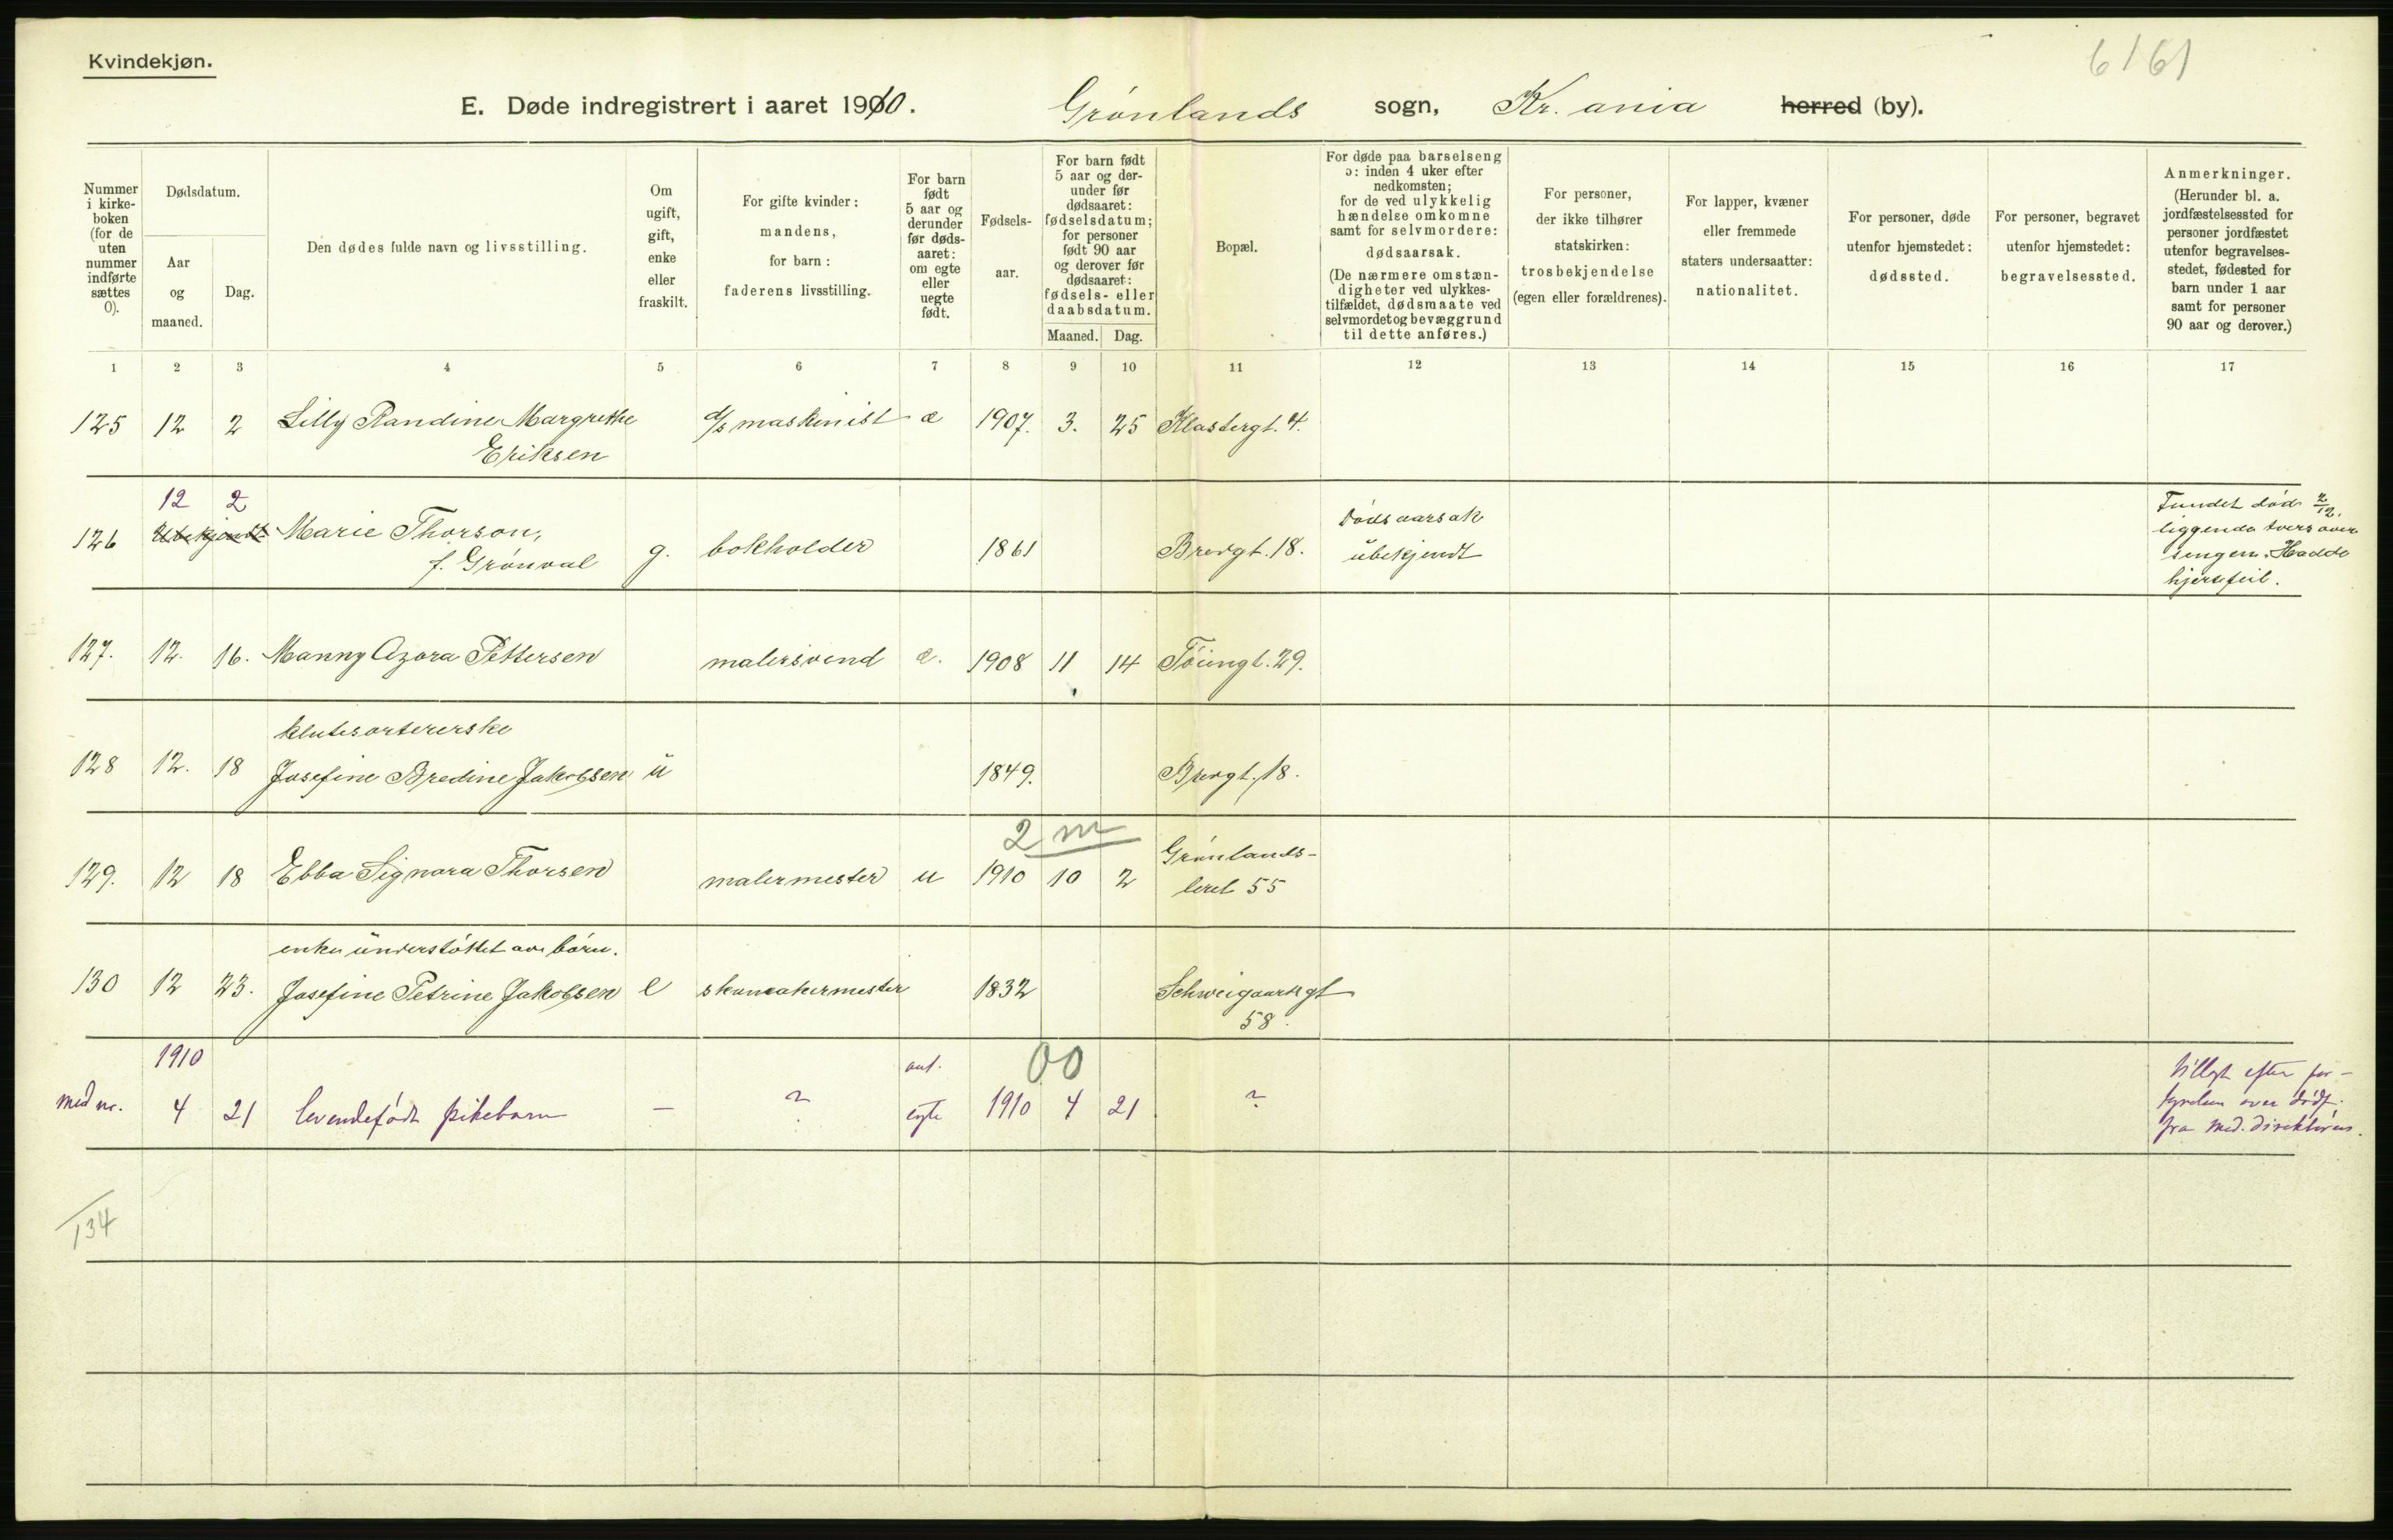 Kvindekjøn.
6161
E. Døde indregistrert i aaret 1910. Grønlands sogn, Kr. ania herred (by).
Nummer i kirkeboken (for de uten nummer indførte sættes 0).
Dødsdatum.
Aar og maaned.
Dag.
Den dødes fulde navn og livsstilling.
Om ugift, gift, enke eller fraskilt.
For gifte kvinder: mandens, for barn: faderens livsstilling.
For barn født 5 aar og derunder før dødsaaret: om egte eller uegte født.
Fødselsaar.
For barn født 5 aar og derunder før dødsaaret: fødselsdatum; for personer født 90 aar og derover før dødsaaret: fødsels- eller daabsdatum.
Maaned. Dag.
Bopæl.
For døde paa barselseng ɔ: inden 4 uker efter nedkomsten; for de ved ulykkelig hændelse omkomne samt for selvmordere: dødsaarsak. (De nærmere omstændigheter ved ulykkestilfældet, dødsmaate ved selvmordet og bevæggrund til dette anføres.)
For personer, der ikke tilhører statskirken: trosbekjendelse (egen eller forældrenes).
For lapper, kvæner eller fremmede staters undersaatter: nationalitet.
For personer, døde utenfor hjemstedet: dødssted.
For personer, begravet utenfor hjemstedet: begravelsessted.
Anmerkninger. (Herunder bl. a. jordfæstelsessted for personer jordfæstet utenfor begravelsesstedet, fødested for barn under 1 aar samt for personer 90 aar og derover.)
1 2 3 4 5 6 7 8 9 10 11 12 13 14 15 16 17
125 12 2 Lilly Randine Margrethe d/s maskinist æ 1907. 3. 25 Klostergt. 4.
Eriksen
12 2
126 Ubekjendt Marie Thorson, g. bokholder 1861 Brevgt. 18. Dødsaarsak
f. Grønval ubekjendt
Fundet død 2/12.
liggende tvers over
sengen. Hadde
hjertefeil.
127. 12. 16. Manny Azora Pettersen malersvend æ. 1908 11 14 Tøiengt. 29.
klutesortererske
128 12. 18 Josefine Bredine Jakobsen u 1849. Brevgt. 18.
2 m
129. 12 18 Ebba Signora Thorsen malermester u 1910 10 2 Grønlands-
leret 55
enke understøttet av børn.
130 12 23. Josefine Petrine Jakobsen e skomakermester 1832 Schweigaardsgt
58.
1910 ant. 00
med nr. 4 21 levendefødt pikebarn — ? egte 1910 4 21 ?
tillagt efter for-
over dødf.
fra med. direktøren.
134